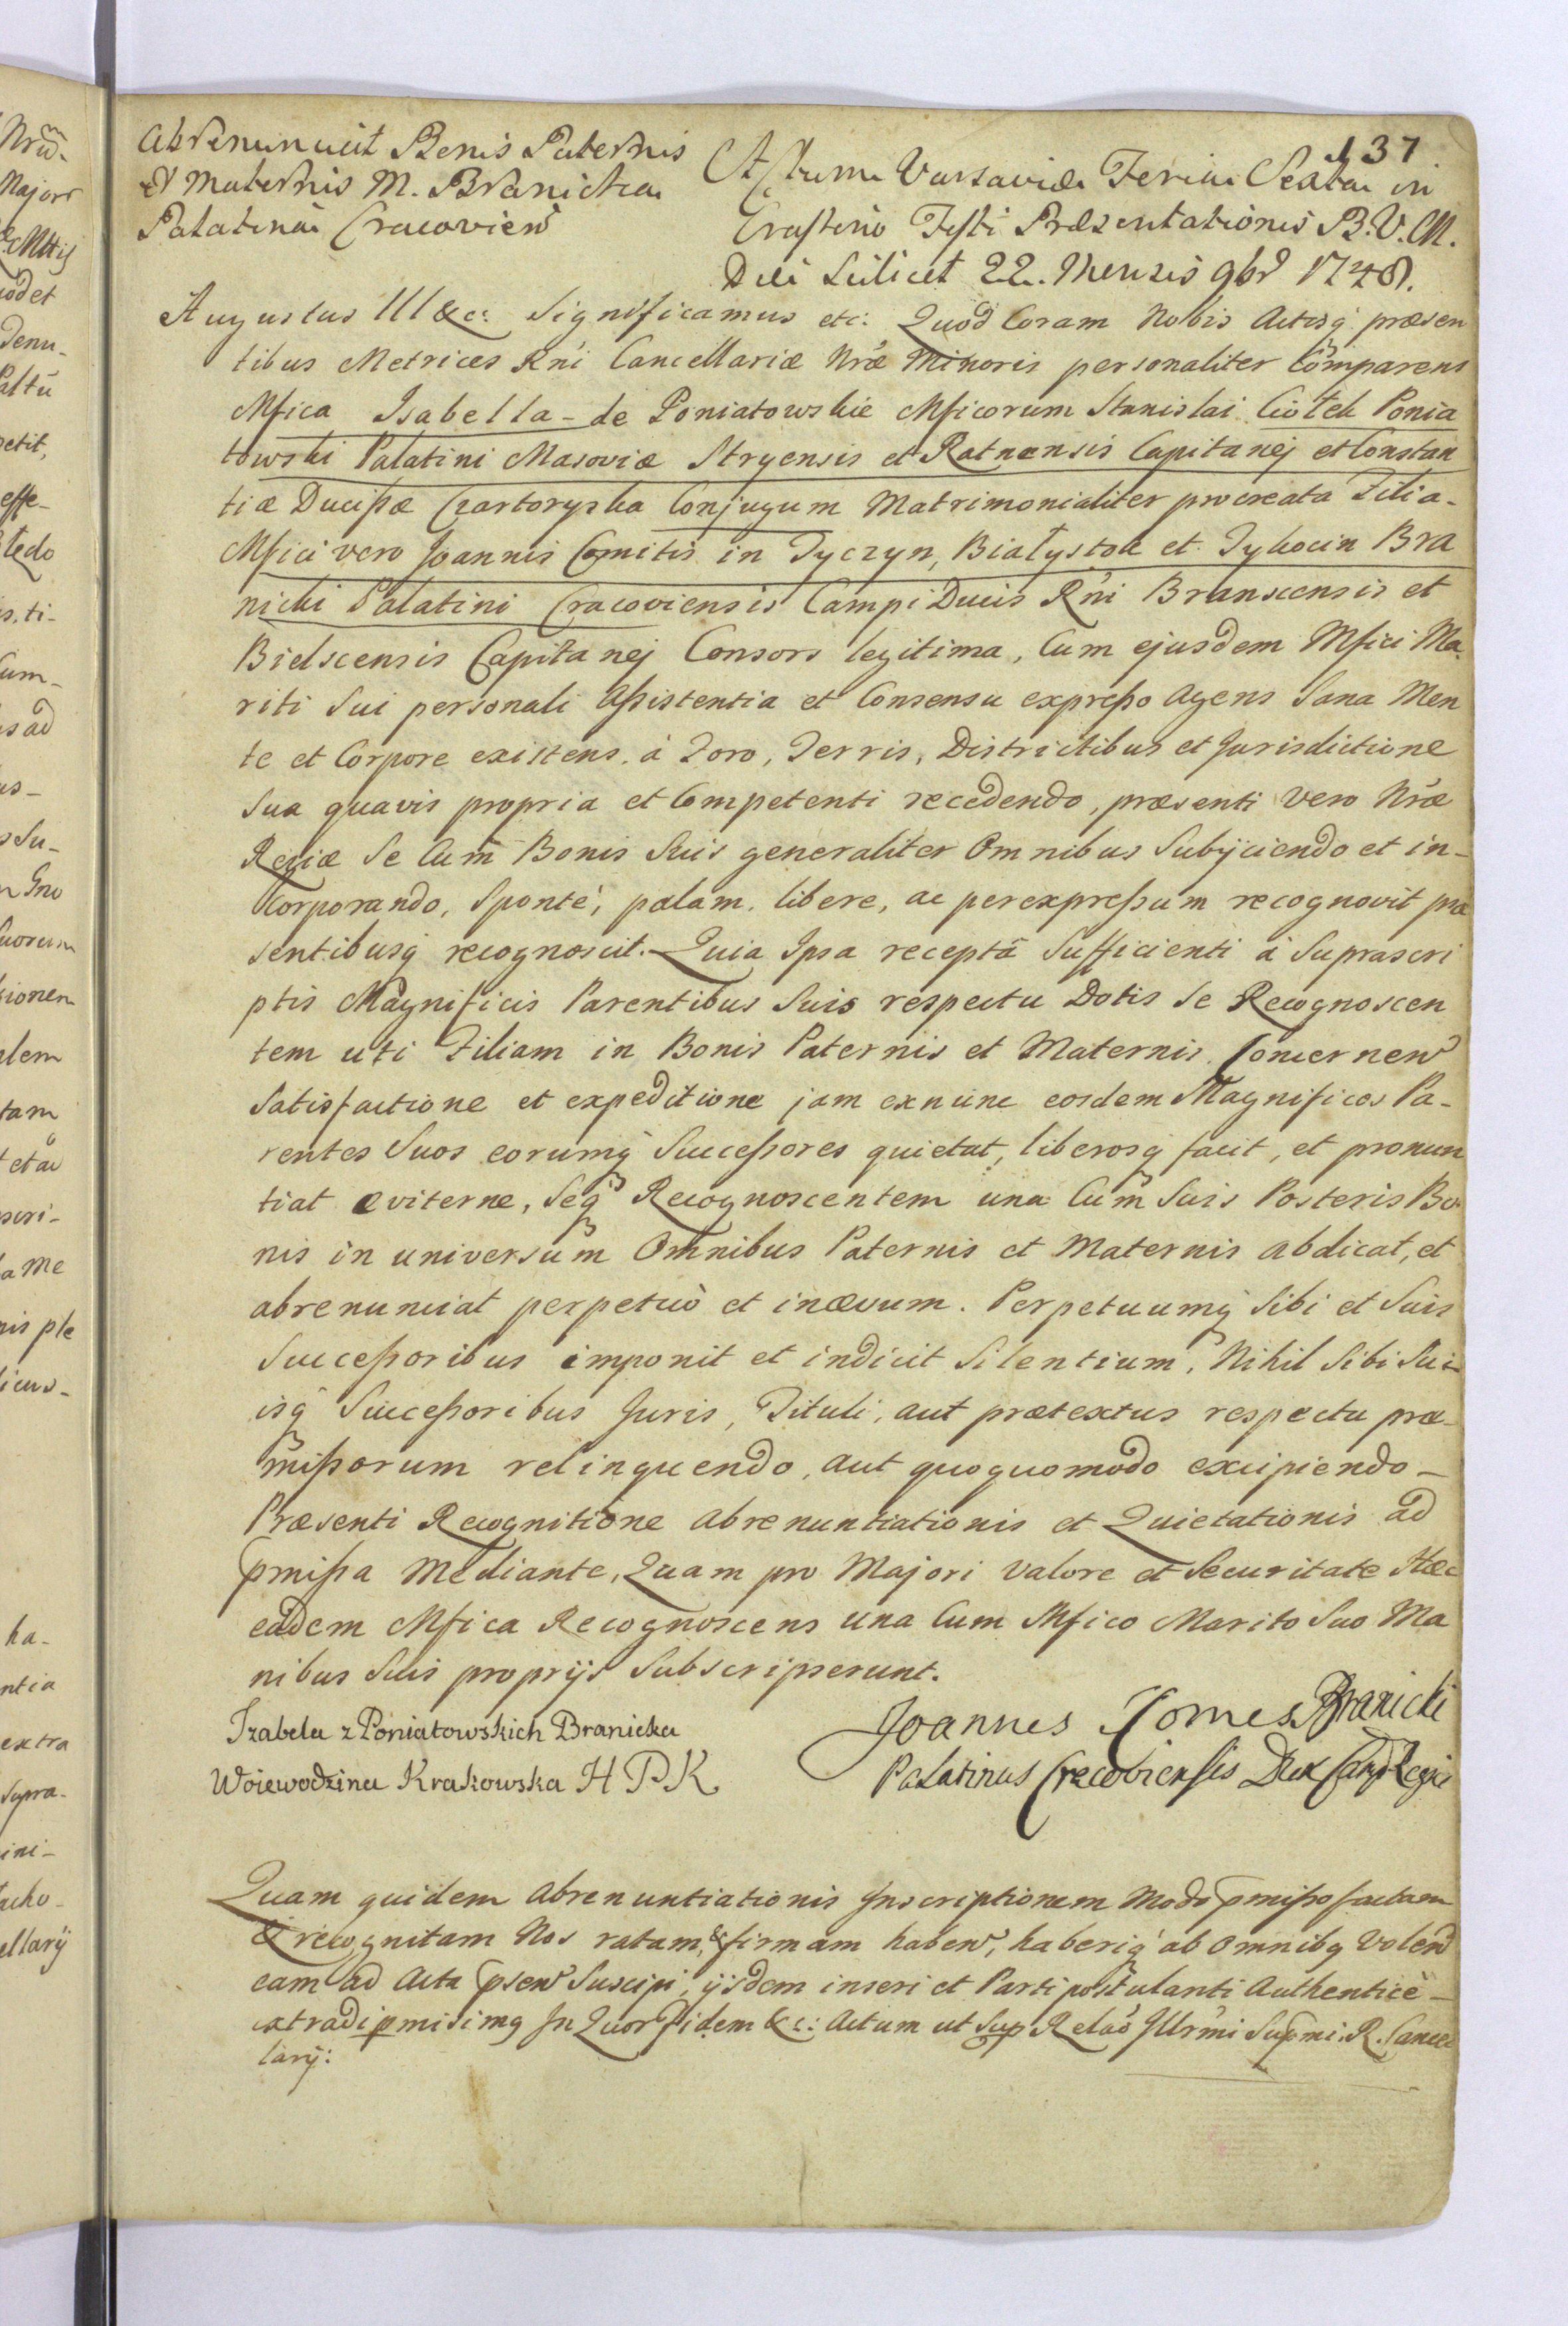 137
Abrenunciat Bonis Paternis
et Maternis M. Branicka
Palatina Cracovien
Actum Varsaviæ Feria Sexta in
Crastino Festi Præsentationis B.V.M.
Die Scilicet 22. Mensis 9br 1748.
Augustus III &c: Significamus etc: Quod Coram Nobis Actisq præsen
tibus Metrices Rni Cancellariæ Nræ Minoris personaliter Comparens
Mfica Isabella - de Poniatowskie Mficorum Stanislai Ciołek Ponia
towski Palatini Masoviæ Stryensis et Ratnensis Capitanej et Constan
tiæ Ducißæ Czartoryska Conjugum Matrimonialiter procreata Filia -
Mfici vero Joannis Comitis in Tyczyn, Białystok et Tykocin Bra
nicki Palatini Cracoviensis Campi Ducis Rni Branscensis et
Bielscensis Capitanej Consors legitima, Cum ejusdem Mfici Ma
riti Sui personali Aßistentia et Consensu expreßo Agens Sana Men
te et Corpore existens. à Foro, Terris, Districtibus et Jurisdictione
Sua quavis propria et Competenti recedendo, præsenti Vero Nræ
Regiæ Se Cum Bonis Suis generaliter Omnibus Subijciendo et in-
corporando, Sponte, palam. libere, ac per expreßum recognovit præ
sentibusq recognoscit. Quia Ipsa receptâ Sufficienti à Suprascri
ptis Magnificis Parentibus Suis respectu Dotis Se Recognoscen
tem uti Filiam in Bonis Paternis et Maternis Concernen
Satisfactione et expeditione jam exnunc eosdem Magnificos Pa-
rentes Suos eorumq Succeßores quietat, liberosq facit, et pronun
tiat æviterne, Seq Recognoscentem una Cum Suis Posteris Bo
nis in universum Omnibus Paternis et Maternis abdicat, et
abrenunciat perpetuò et inævum. Perpetuumq Sibi et Suis
Succeßoribus imponit et indicit Silentium, Nihil Sibi Su-
isq Succeßoribus Juris, Tituli, aut prætextus respectu præ-
mißorum relinquendo, aut quoquomodo excipiendo -
Præsenti Recognitione Abrenuntiationis et Quietationis ad
pmißa Mediante, Quam pro Majori Valore et Securitate Hæc
eadem Mfica Recognoscens una Cum Mfico Marito Suo Ma
nibus Suis proprijs Subscripserunt.
Izabela z Poniatowskich Branicka
Woiewodzina Krakowska H P. K.
Joannes Comes Branicki
Palatinus Cracoviensis Dux Camp Regni
Quam quidem Abrenuntiationis Inscriptionem Modo pmißo factam
& recognitam Nos ratam, & firmam haben, haberiq ab omnibq Volen
eam ad Acta psen Suscipi, ijsdem inseri et Parti postulanti Authenticè -
extradi pmisimq In Quor Fidem &c: Actum ut Sup Relaõ Illrmi Supmi R. Cancel
larij:
Nrm
Majore
iod et
Denu-
petit,
effe-
s. ti-
Cum-
s ad
us-
Su-
n Gno
uorum
ionem
alem
tam
scri-
a Me
nis ple
icus-
ha-
ntia
extra
Supra-
ini-
ellarij